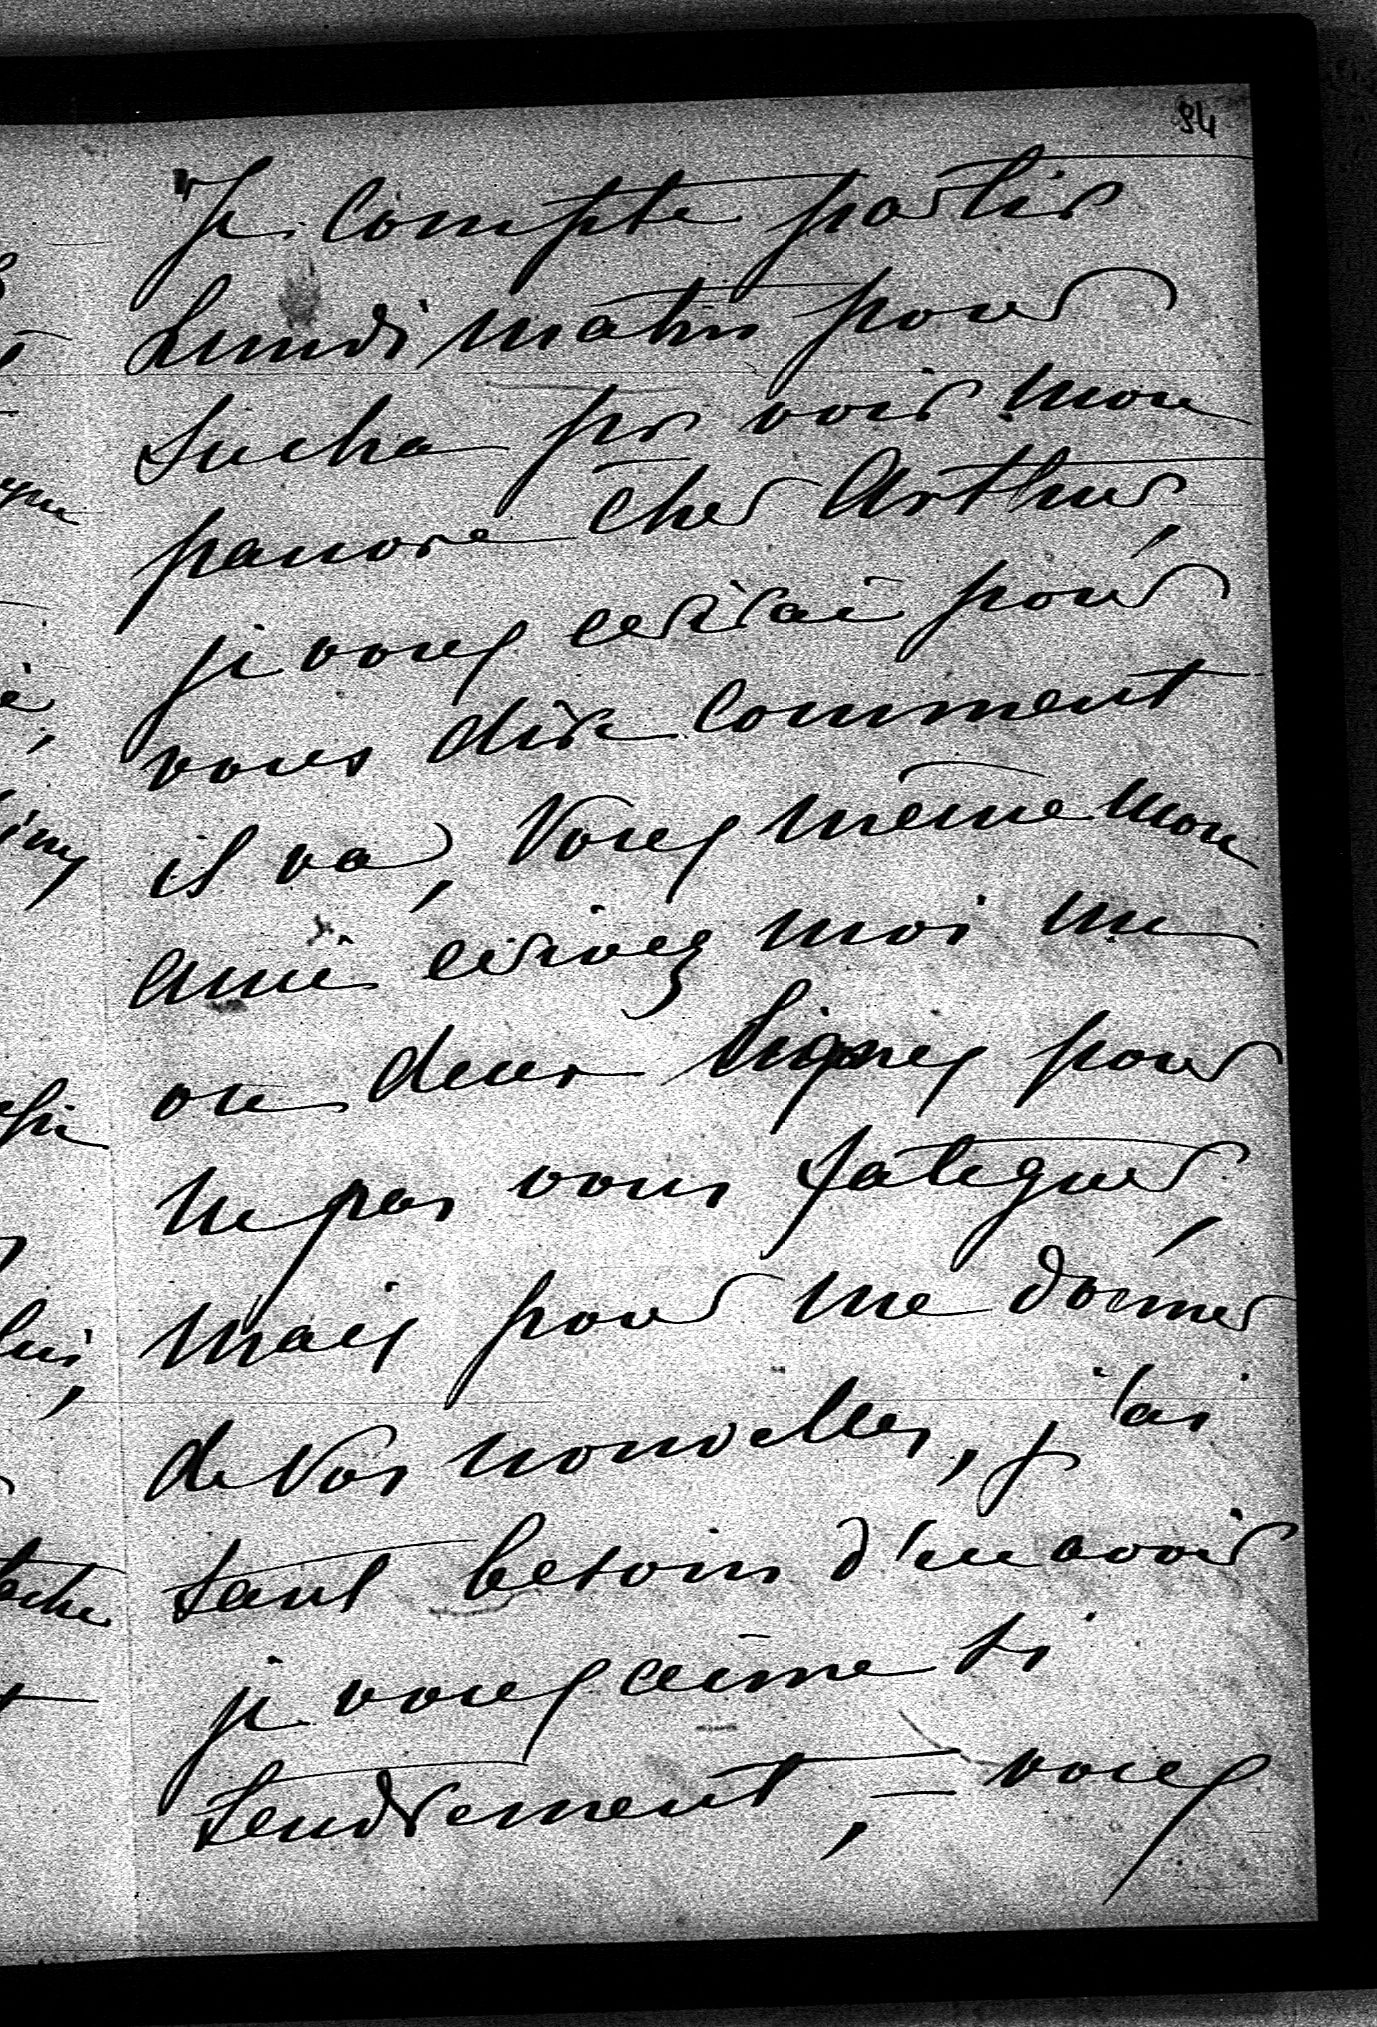 84
Je compte partir
Lundi matin pour
Sucha pr voir mon
pauvre cher Arthur,
je vous ecrirai pour
vous dire comment
il va, Vous même mon
amie ecrivez moi une
ou deux lignes pour
ne pas vous fatiguer,
mais pour me donner
de Vos nouvelles, j'ai
tant besoin d'en avoir
je vous aime si
tendrement, – vous